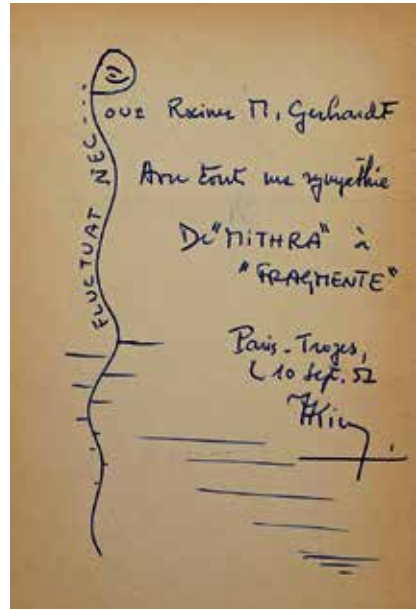 FLUCTUAT NEC....
Pour Rainer M. Gerhardt
Avec toute ma sympathie
De "MITHRA" à
"FRAGMENTE"
Paris-Troyes,
le 10 Sept. 52